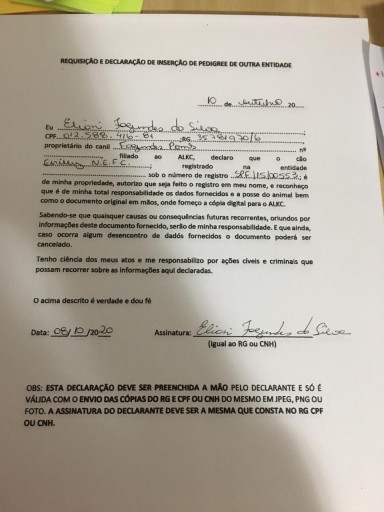 REQUISIÇÃO E DECLARAÇÃO DE INSERÇÃO DE PEDIGREE DE OUTRA ENTIDADE
10 de outubro 20
Eu Elioni Fagundes da Silva
CPF 012.588.416-81 RG
proprietário do canil Fagundes nº
filiado ao ALKC, declaro que o cão
N.E.F.C. registrado na entidade
sob o número de registro SPF/15/00553; é
de minha propriedade, autorizo que seja feito o registro em meu nome, e reconheço
que é de minha total responsabilidade os dados fornecidos e a posse do animal bem
como o documento original em mãos, onde forneço a cópia digital para o ALKC.
Sabendo-se que quaisquer causas ou consequências futuras recorrentes, oriundos por
informações deste documento fornecido, serão de minha responsabilidade. E que ainda,
caso ocorra algum desencontro de dados fornecidos o documento poderá ser
cancelado.
Tenho ciência dos meus atos e me responsabilizo por ações cíveis e criminais que
possam recorrer sobre as informações aqui declaradas.
O acima descrito é verdade e dou fé
Data: 08/10/2020 Assinatura: Elioni Fagundes da Silva
(igual ao RG ou CNH)
OBS: ESTA DECLARAÇÃO DEVE SER PREENCHIDA A MÃO PELO DECLARANTE E SÓ É
VÁLIDA COM O ENVIO DAS CÓPIAS DO RG E CPF OU CNH DO MESMO EM JPEG, PNG OU
FOTO. A ASSINATURA DO DECLARANTE DEVE SER A MESMA QUE CONSTA NO RG CPF
OU CNH.